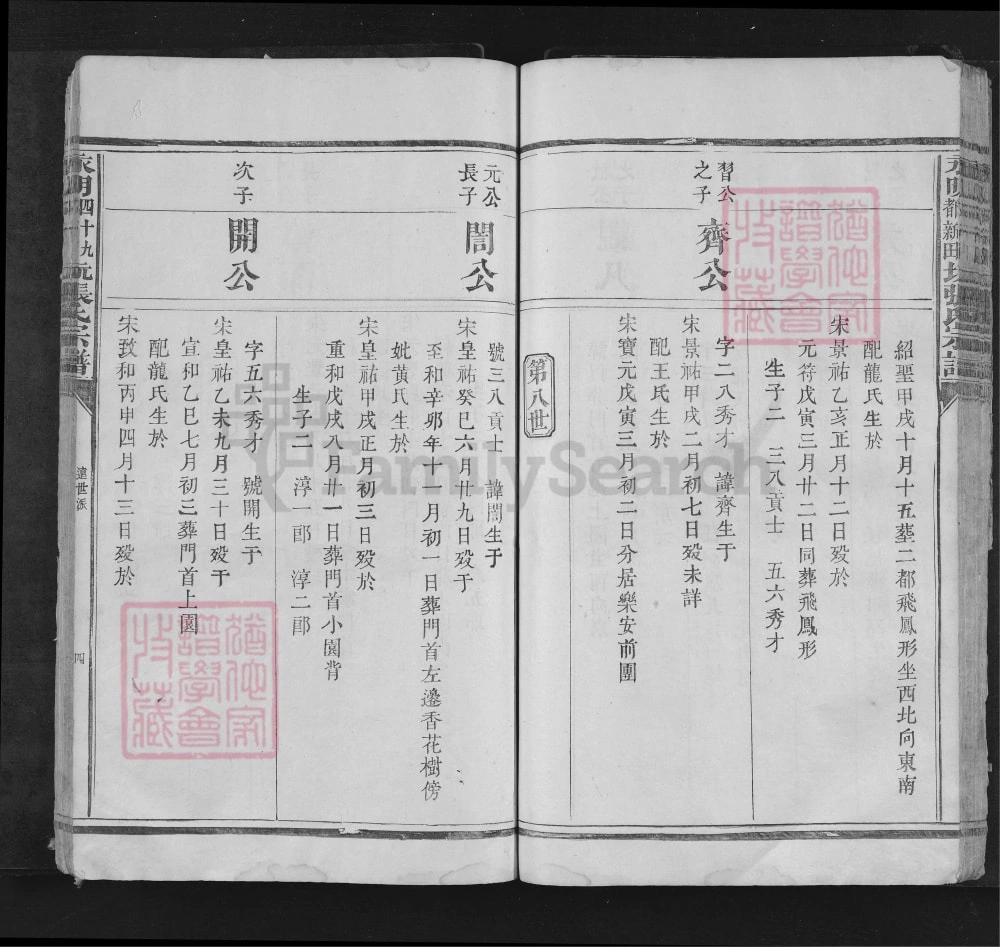 紹聖甲戌十月十五葬二都飛鳳形坐西北向東南
配龍氏生於
宋景祐乙亥正月十二日殁於
元符戊寅三月廿二日同葬飛鳳形
生子二 三八貢士 五六秀才
習公之子
齊公
字二八秀才 諱齊生于
宋景祐甲戌二月初七日殁未詳
配王氏生於
宋寶元戊寅三月初二日分居樂安前團
第八世
元公長子
誾公
號三八貢士 諱誾生于
宋皇祐癸巳六月廿九日殁于
至和辛卯年十一月初一日葬門首左邊香花樹傍
妣黃氏生於
宋皇祐甲戌正月初三日殁於
重和戊戌八月廿一日葬門首小園背
生子二 淳一郎 淳二郎
次子
開公
字五六秀才 號開生于
宋皇祐乙未九月三十日殁于
宣和乙巳七月初三葬門首上園
配龍氏生於
宋政和丙申四月十三日殁於
張氏宗譜
遠世派
四
FamilySearch